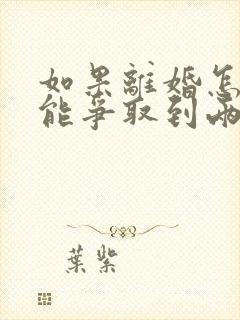 如果離婚怎
能爭取到兩
葉紫